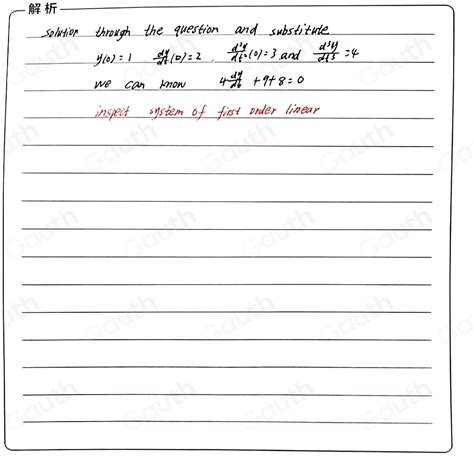 解析
solution through the question and substitute
y(0) = 1 dy/dt(0) = 2 , d²y/dt²(0) = 3 and d³y/dt³ = 4
we can know 4 dy/dt + 9 + 8 = 0
inspect system of first order linear
Gauth